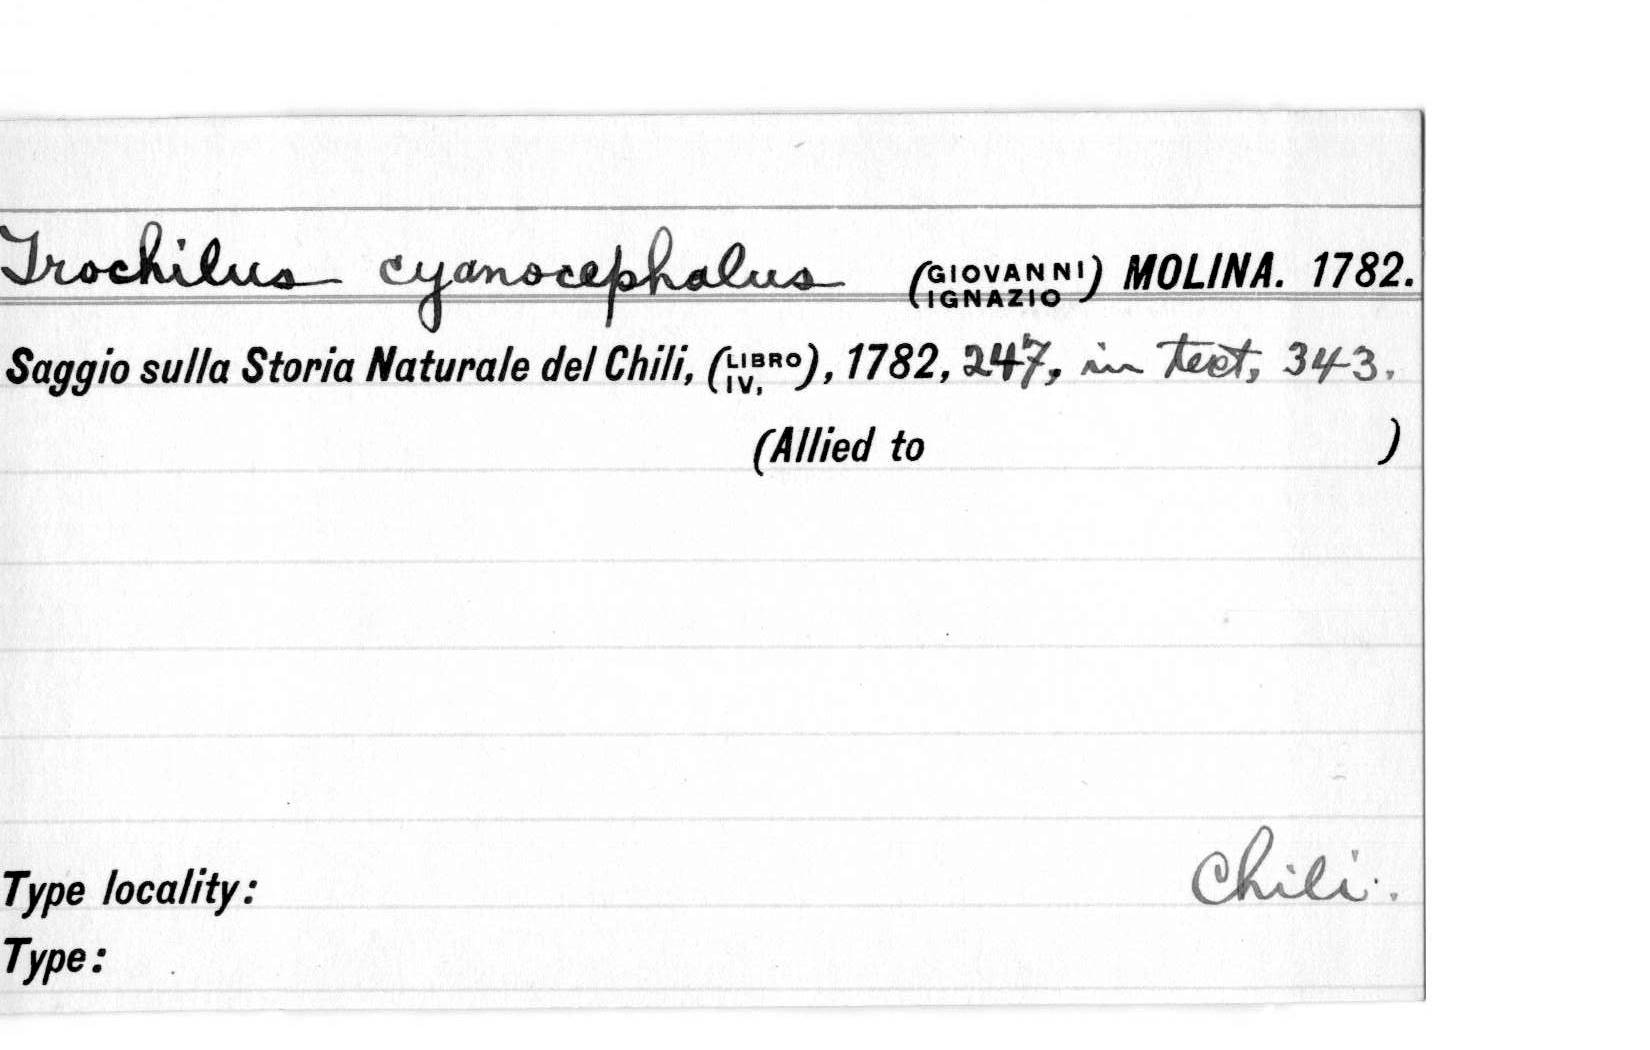 Trochilus cyanocephalus (GIOVANNI IGNAZIO) MOLINA. 1782.
Saggio sulla Storia Naturale del Chili, (LIBRO IV,), 1782, 247, in text, 343.
(Allied to )
Type locality: Chili.
Type: